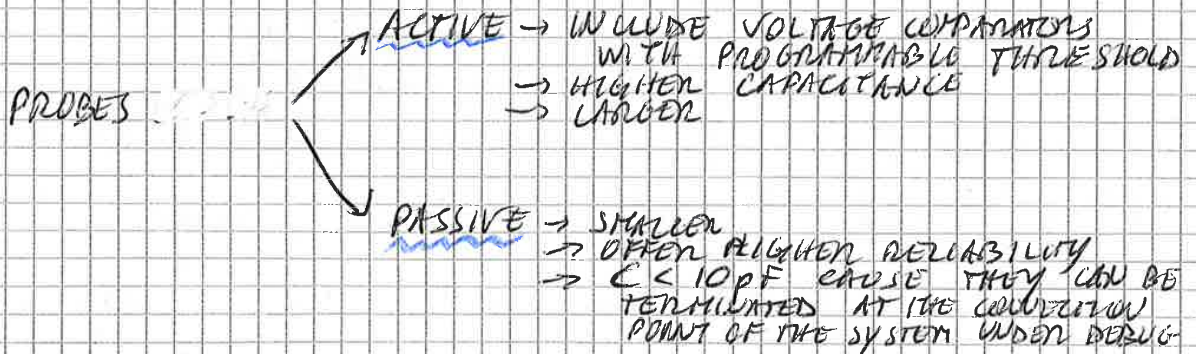 ACTIVE → INCLUDE VOLTAGE COMPARATORS
WITH PROGRAMMABLE THRESHOLD
→ HIGHER CAPACITANCE
PROBES
→ LARGER
PASSIVE → SMALLER
→ OFFER HIGHER RELIABILITY
→ C < 10pF CAUSE THEY CAN BE
TERMINATED AT THE CONNECTION
POINT OF THE SYSTEM UNDER DEBUG